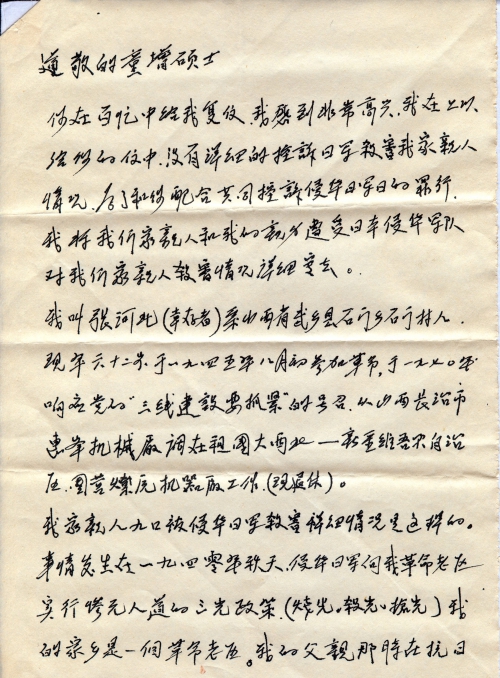 尊敬的童增硕士
你在百忙中给我复信、我感到非常高兴、我在上次
给你的信中、没有详细的控诉日军杀害我家亲人
情况、为了和你配合共同控诉侵华日军的罪行、
我将我们家亲人和我的亲 遭受日本侵华军队
对我们家亲人殺害情况详细 去。
我叫張河北(幸存者)系山西省武乡县石门乡石门村人.
现年六十二岁于一九四五年八月初参加革命,于一九七〇年
响应党的“三线建設要抓紧”的号召、从山西長治市
惠华机械厰调在祖国大西北一新疆维吾尔自治
区、国营燎原机器厰工作.(现退休)。
我家亲人九口被侵华日军殺害祥细情况是这样的。
事情发生在一九四零年秋天、侵华日军向我革命老区
实行惨无人道的三光政策.(烧光、殺光、抢光)我
的家乡是一個革命老区。我的父親那時在抗日